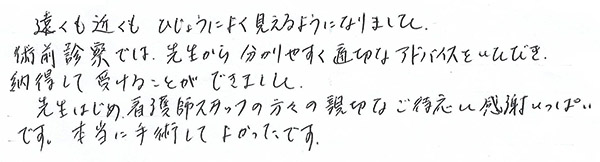 遠くも近くも ひじょうによく見えるようになりました。
術前診察では、先生から 分かりやすく適切なアドバイスをいただき、
納得して受けることが できました。
先生はじめ、看護師スタッフの方々の親切なご待応に感謝いっぱい
です。本当に手術して よかったです。